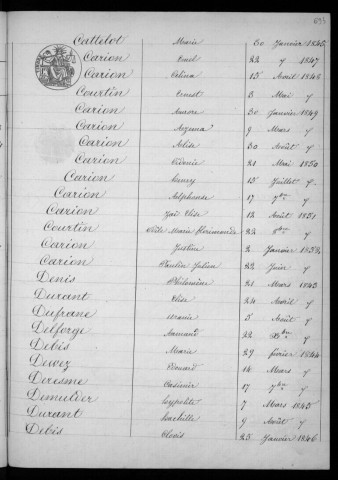 Cattelot Marie 30 Janvier 1845
Carion 22 1847
Carion Celina 15 Avril 1848
Courtin Ernest 3 Mai
Carion Aurore 30 Janvier 1849
Carion Azema 9 Mars
Carion Aelise 30 Août
Carion Sidonie 21 Mai 1850
Carion 15 Juillet
Carion Alphonse 17 7bre
Carion Zoé Elise 12 Août 1851
Courtin Marie Florimonde 22 8bre
Carion Justine 2 Janvier 1852
Carion Paulin Julien 22 Juin
Denis Philomène 21 Mars 1843
Durant Elise 24 Avril
Dufrane Uranie 5 Août
Delforge Armand 22 Xbre
Debis Marie 29 février 1844
Duvez Edouard 14 Mars
Deresme Casimir 17 7bre
Demulder hypolite 7 Mars 1845
Durant 9 Août
Debis Clovis 25 Janvier 1846